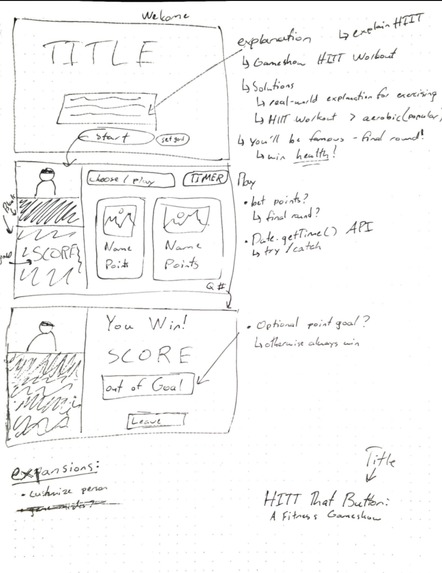 Welcome
TITLE
start
set goal
explanation ↳ explain HIIT
↳ Gameshow HIIT Workout
↳ Solutions
↳ real-world explanation for exercising
↳ HIIT workout > aerobic (popular)
↳ You'll be famous - final round!
↳ win healthy!
choose / play
TIMER
SCORE
Name
Points
Name
Points
Q #
Play
• bet points?
↳ final round?
• Date.getTime() API
↳ try/catch
You Win!
SCORE
out of Goal
Leave
• Optional point goal?
↳ otherwise always win
expansions:
• customize person
Title
HITT That Button:
A Fitness Gameshow